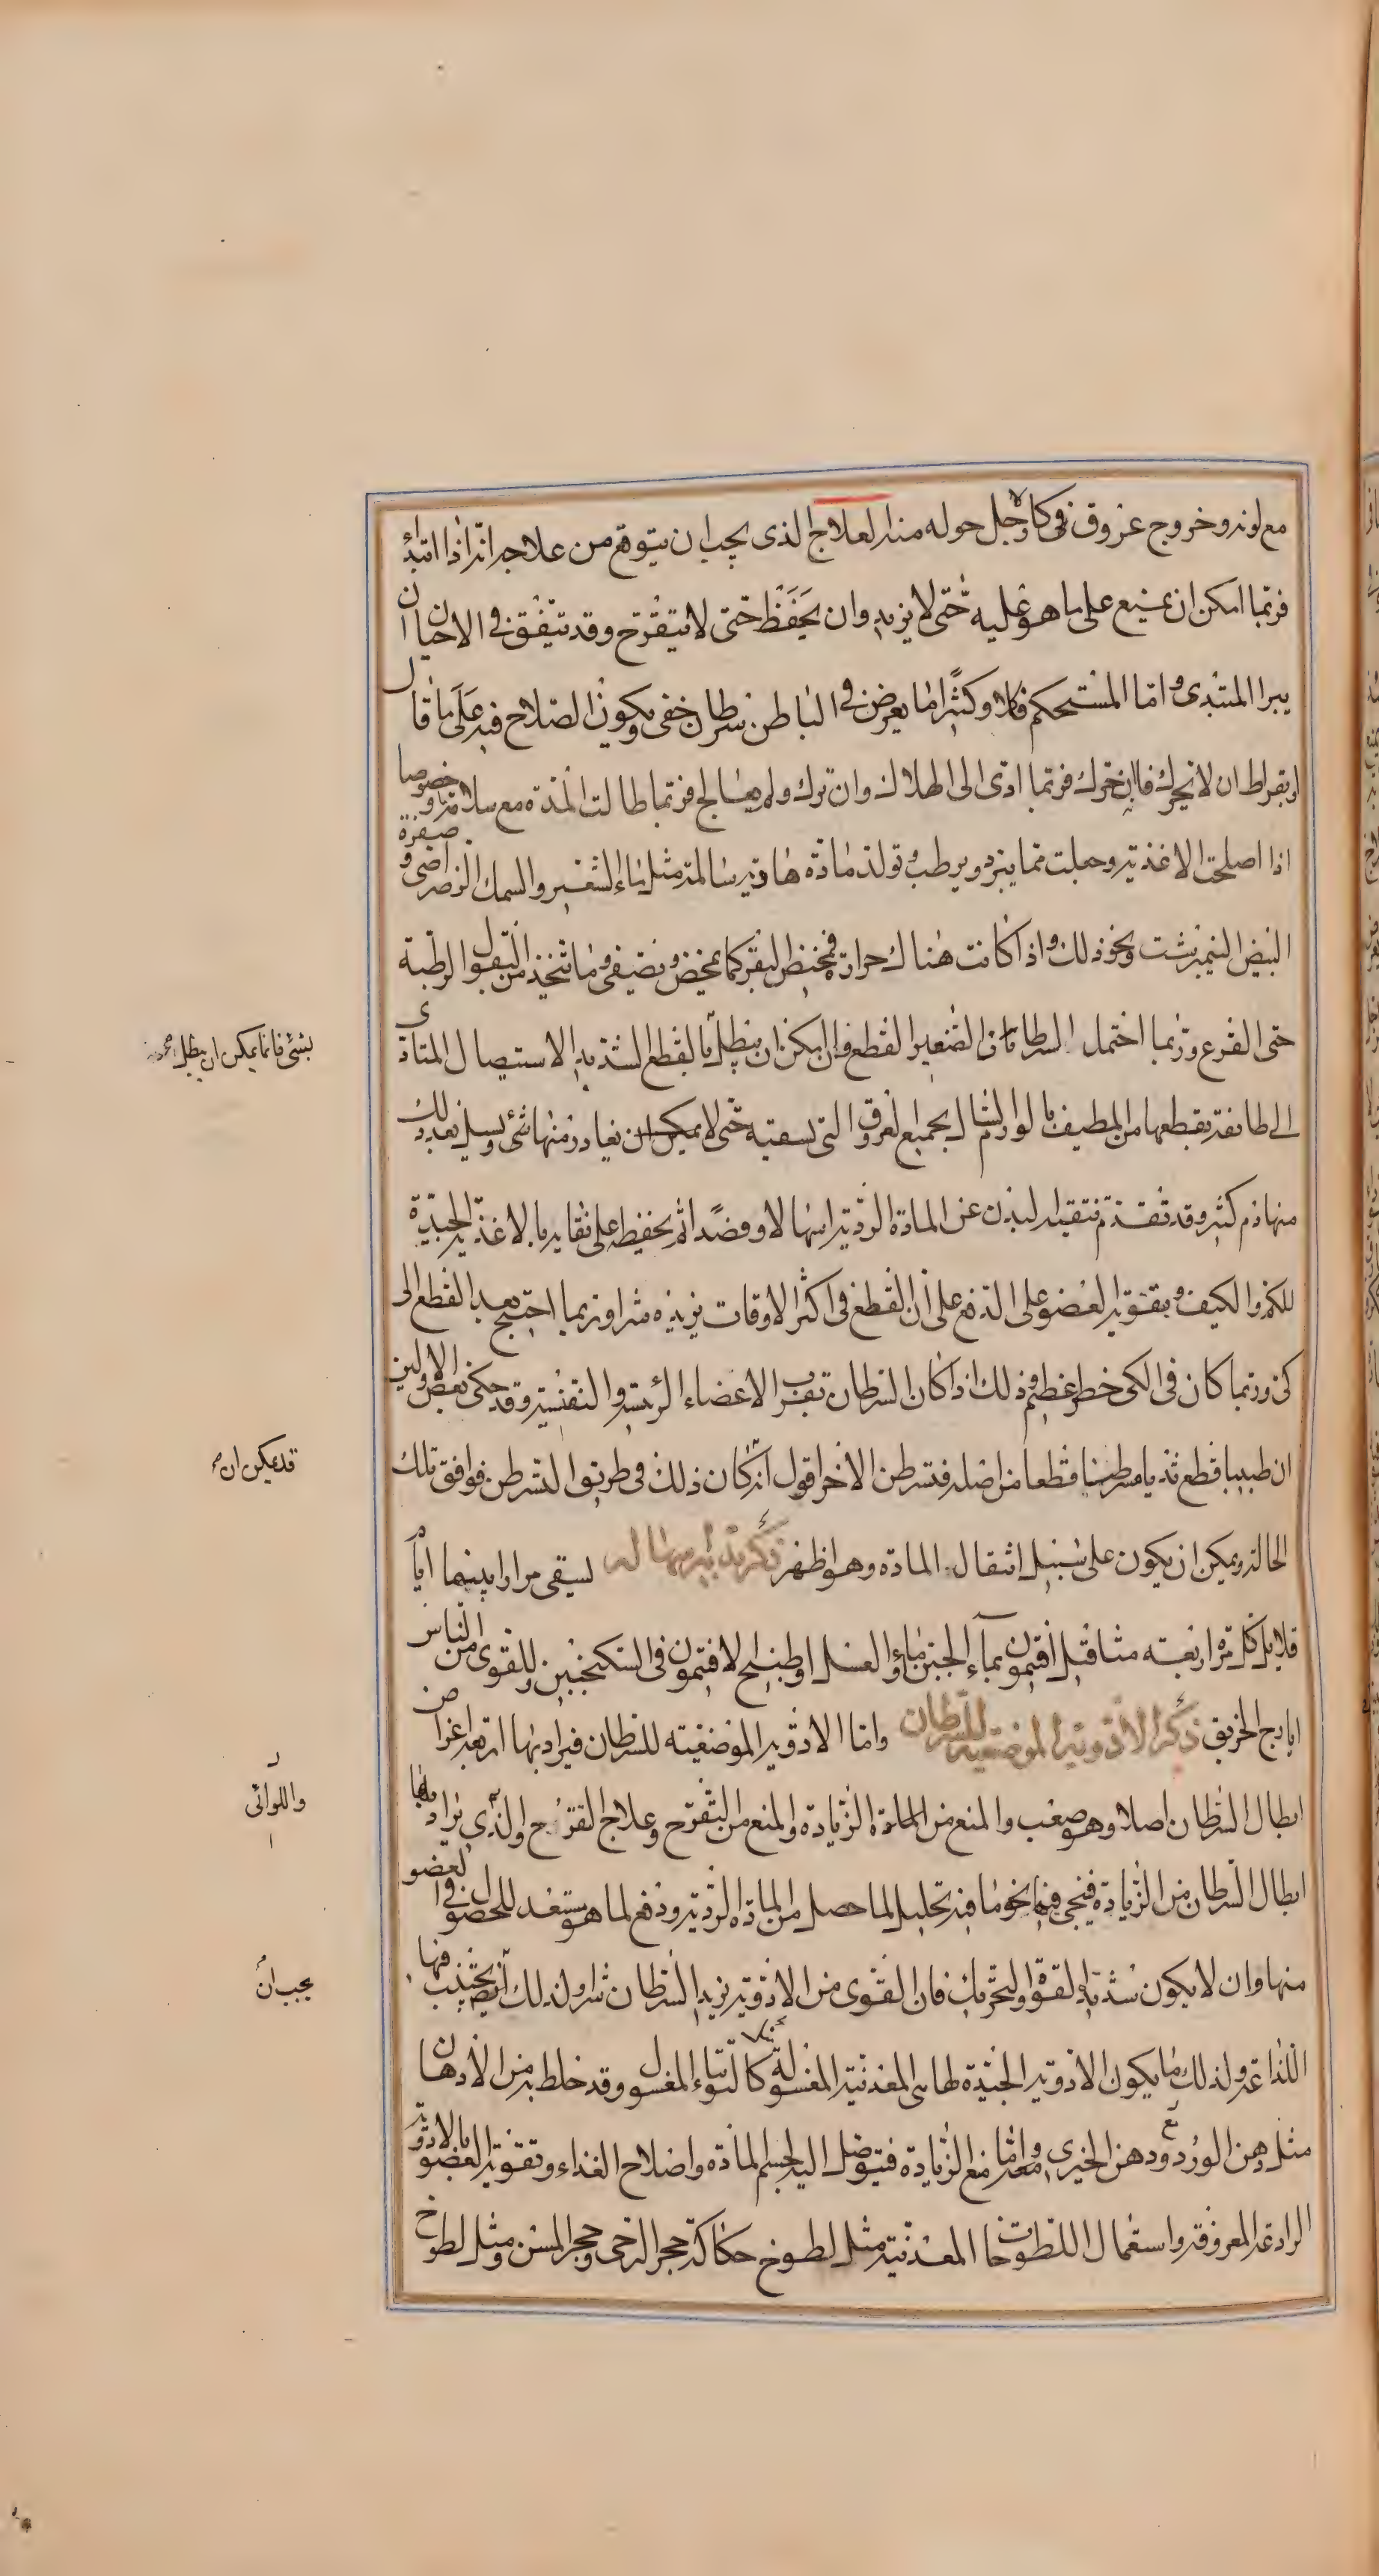 مع لونه وخروج عروق فى كالارجل حوله منه العلاج الذى يجب ان يتوقع من علاجه انه اذا ابتدأ
فربما امكن ان يمنع على ما هو عليه حتى لا يزيد وان يحفظ حتى لا يتقرح وقد يتفق فى الاحيان ان
يبرا المبتدى واما المستحكم فكلا وكثيرا ما يعرض فى الباطن سرطان خفى ويكون الصلاح فيه على ما قال
ابقراط ان لا يحرك فانه ان حرك فربما ادى الى الهلاك وان ترك ولم يعالج فربما طالت المدة مع سلامة ما وخصوصا
اذا اصلحت الاغذية وجعلت مما يبرد ويرطب وتولد مادة هادية سالمة مثل ماء الشعير والسمك الرضراضى وصفرة
البيض النيمبرشت ونحو ذلك واذا كانت هناك حرارة فمخيض البقر كما يمخض ويصفى وما يتخذ من البقول الرطبة
حتى القرع وربما احتمل السرطان الصغير القطع وان امكن ان يبطل فالقطع الشديد الاستيصال المتعدى
الى طائفة يقطعها من المطيف بالورم السال لجميع العروق التى تسقيه حتى لا يغادر منها شئ ويسيل بعد ذلك
منها دم كثير وقد تقدم بتنقية البدن عن المادة الردية اسهالا وفصدا ثم يحفظه على نقائه بالاغذية الجيدة
للكم والكيف وبتقوية العضو على الدفع على ان القطع فى اكثر الاوقات يزيده شرا وربما احتيج بعد القطع الى
كى وربما كان فى الكى خطر عظيم وذلك اذا كان السرطان بقرب الاعضاء الرئيسة والنفيسة وقد حكى بعض الاولين
ان طبيبا قطع ثديا متسرطنا قطعا من اصله فتسرطن الاخر اقول انه كان ذلك فى طريق التسرطن فوافق تلك
الحالة ويمكن ان يكون على سبيل انتقال المادة وهو اظهر ذكر تدبير مسهل له يسقى مرارا بينها ايام
قلايل كل مرة اربعة مثاقيل افتيمون بماء الجبن او ماء العسل او طبيخ الافتيمون فى السكنجبين وللقوى من الناس
ايارج الخربق ذكر الادوية الموضعية للسرطان واما الادوية الموضعية للسرطان فيراد بها اربعة اغراض
ابطال السرطان اصلا وهو صعب والمنع من الزيادة والمنع من التقرح وعلاج القرح والذى يراد بها
ابطال السرطان من الزيادة فينحى فيها نحو ما فيه تحليل لما حصل من المادة الردية ودفع لما هو مستعد للحصول فى العضو
منها وان لا يكون شديد القوة والتحريك فان القوى من الادوية يزيد السرطان شرا ولذلك ايضا يجتنب فيها
اللذاعة ولذلك ما يكون الادوية الجيدة لها هى المعدنية المغسولة كالتوتياء المغسول وقد خلط به من الادهان
مثل دهن الورد ودهن الخيرى معه واما منع الزيادة فيتوصل اليه بحسم المادة واصلاح الغذاء وتقوية العضو بالادوية
الرادعة المعروفة واستعمال اللطوخات المعدنية مثل لطوخ حكاكة حجر الرحى وحجر المسن ومثل لطوخ
بشئ فانما يمكن ان يبطل
قد يمكن ان
واللواتى
يجب ان